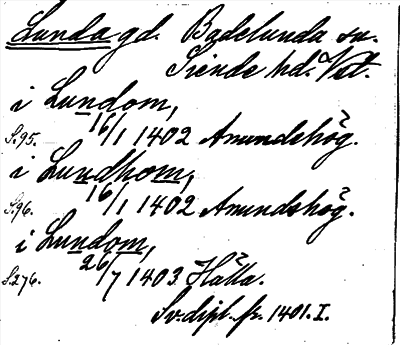 Lunda gd. Badelunda sn.
Siende hd. Vst.
i Lundom,
S. 95. 16/1 1402 Amundshög.
i Lundhom,
S. 96. 16/1 1402 Amundshög.
i Lundom,
S. 276. 26/7 1403 Hälla.
Sv. dipl. fr. 1401. I.